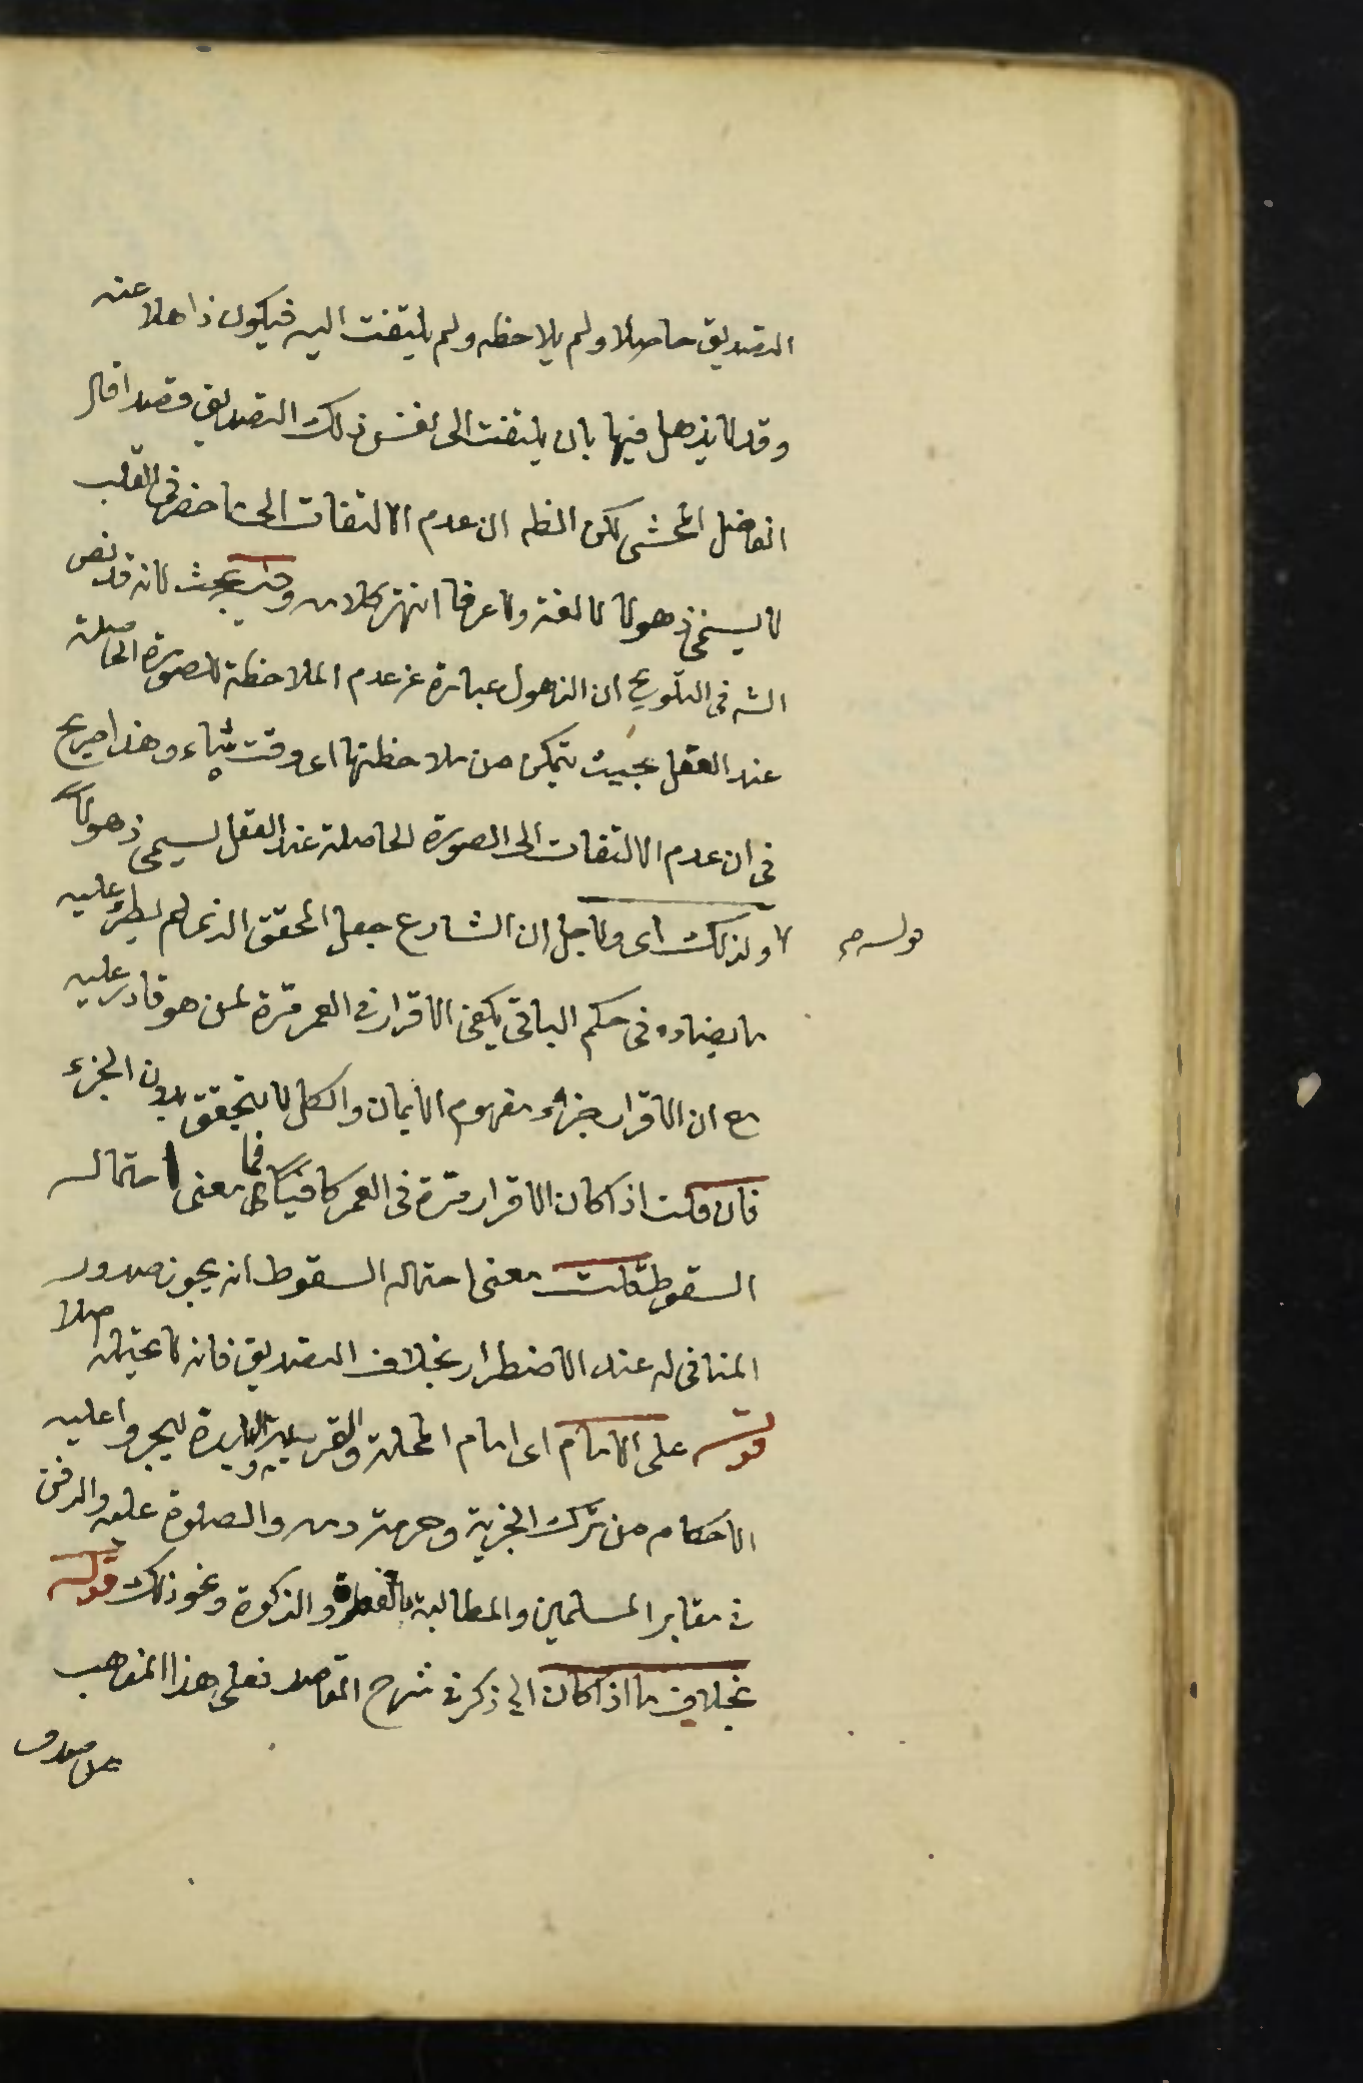 التصديق حاصلا ولم يلاحظه ولم يلتفت اليه فيكون ذاهلا عنه
وقد لا يذهل فيها بان يلتفت الى نفس ذلك التصديق قصدا قال
الفاضل المحشى لكن الظه ان عدم الالتفات الى ما حضر فى القلب
لا يسمى ذهولا لا لغة ولا عرفا انتهى كلامه وفيه بحث لانه قد نص
الشه فى التلويح ان الذهول عبارة عن عدم الملاحظة للصورة الحاصلة
عند العقل بحيث يتمكن من ملاحظتها اى وقت يشاء وهذا صريح
فى ان عدم الالتفات الى الصورة الحاصلة عند العقل يسمى ذهولاً
ولذلك اى ولاجل ان الشارع جعل المحقق الذى لم يطرء عليه
قوله
ما يضاده فى حكم الباقى يكفى الاقرار فى العمر مرة لمن هو قادر عليه
مع ان الاقرار جزء مفهوم الايمان والكل لا يتحقق بدون الجزء
فان قلت اذا كان الاقرار مرة فى العمر كافياً فما معنى احتمال
السقوط قلت معنى احتماله السقوط انه يجوز صدور
المنافى له عند الاضطرار بخلاف التصديق فانه لا يحتمله اصلا
قوله على الامام اى امام المحلة والقرية والبلدة ليجروا عليه
الاحكام من ترك الجزية وحرمة دمه والصلوة عليه والدفن
فى مقابر المسلمين والمطالبة والزكوة ونحو ذلك قوله
بخلاف ما اذا كان الخ ذكر فى شرح المقاصد فعلى هذا المذهب
من صدق